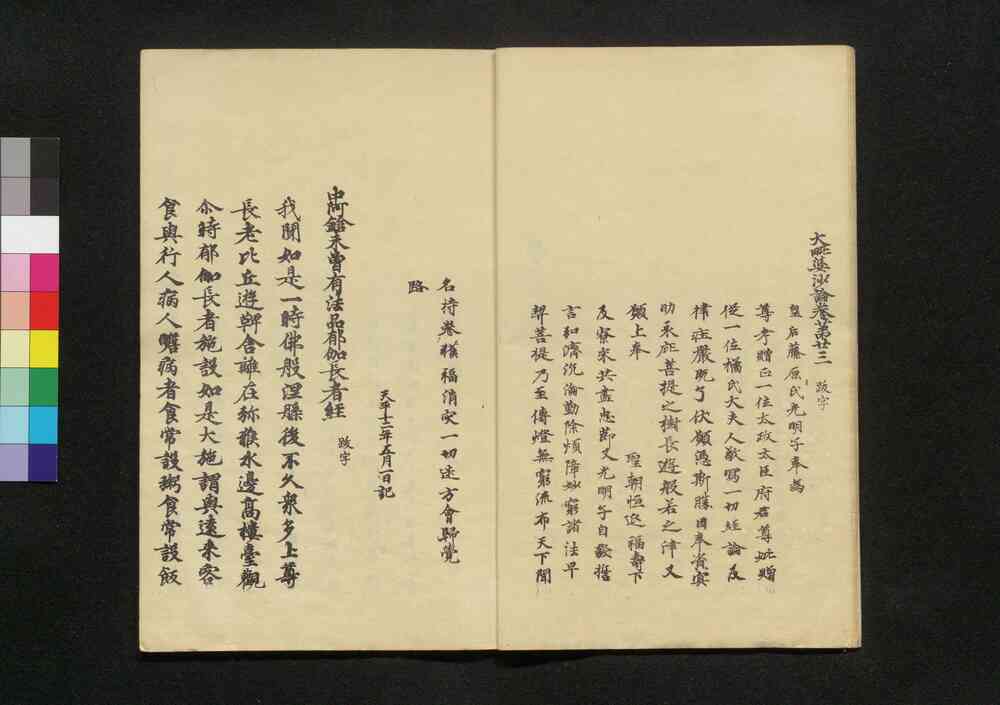 大毗婆沙論卷第廿三 跋字
皇后藤原氏光明子奉為
尊考贈正一位太政太臣府君尊妣贈
從一位橘氏大夫人敬寫一切經論及
律莊嚴既了伏願憑斯勝因奉資冥
助永庇菩提之樹長遊般若之津又
願上奉 聖朝恒延福壽下
及寮采共盡忠節又光明子自發誓
言弘濟沉淪勤除煩障妙窮諸法早
契菩提乃至傳燈無窮流布天下聞
名持卷獲福消灾一切迷方會歸覺
路
天平十二年五月一日記
中阿鋡未曾有法品郁伽長者經 跋字
我聞如是一時佛般涅槃後不久衆多上尊
長老比丘遊鞞舍離在弥猴水邊高樓臺觀
尒時郁伽長者施設如是大施謂與遠来客
食與行人病人瞻病者食常設粥食常設飯